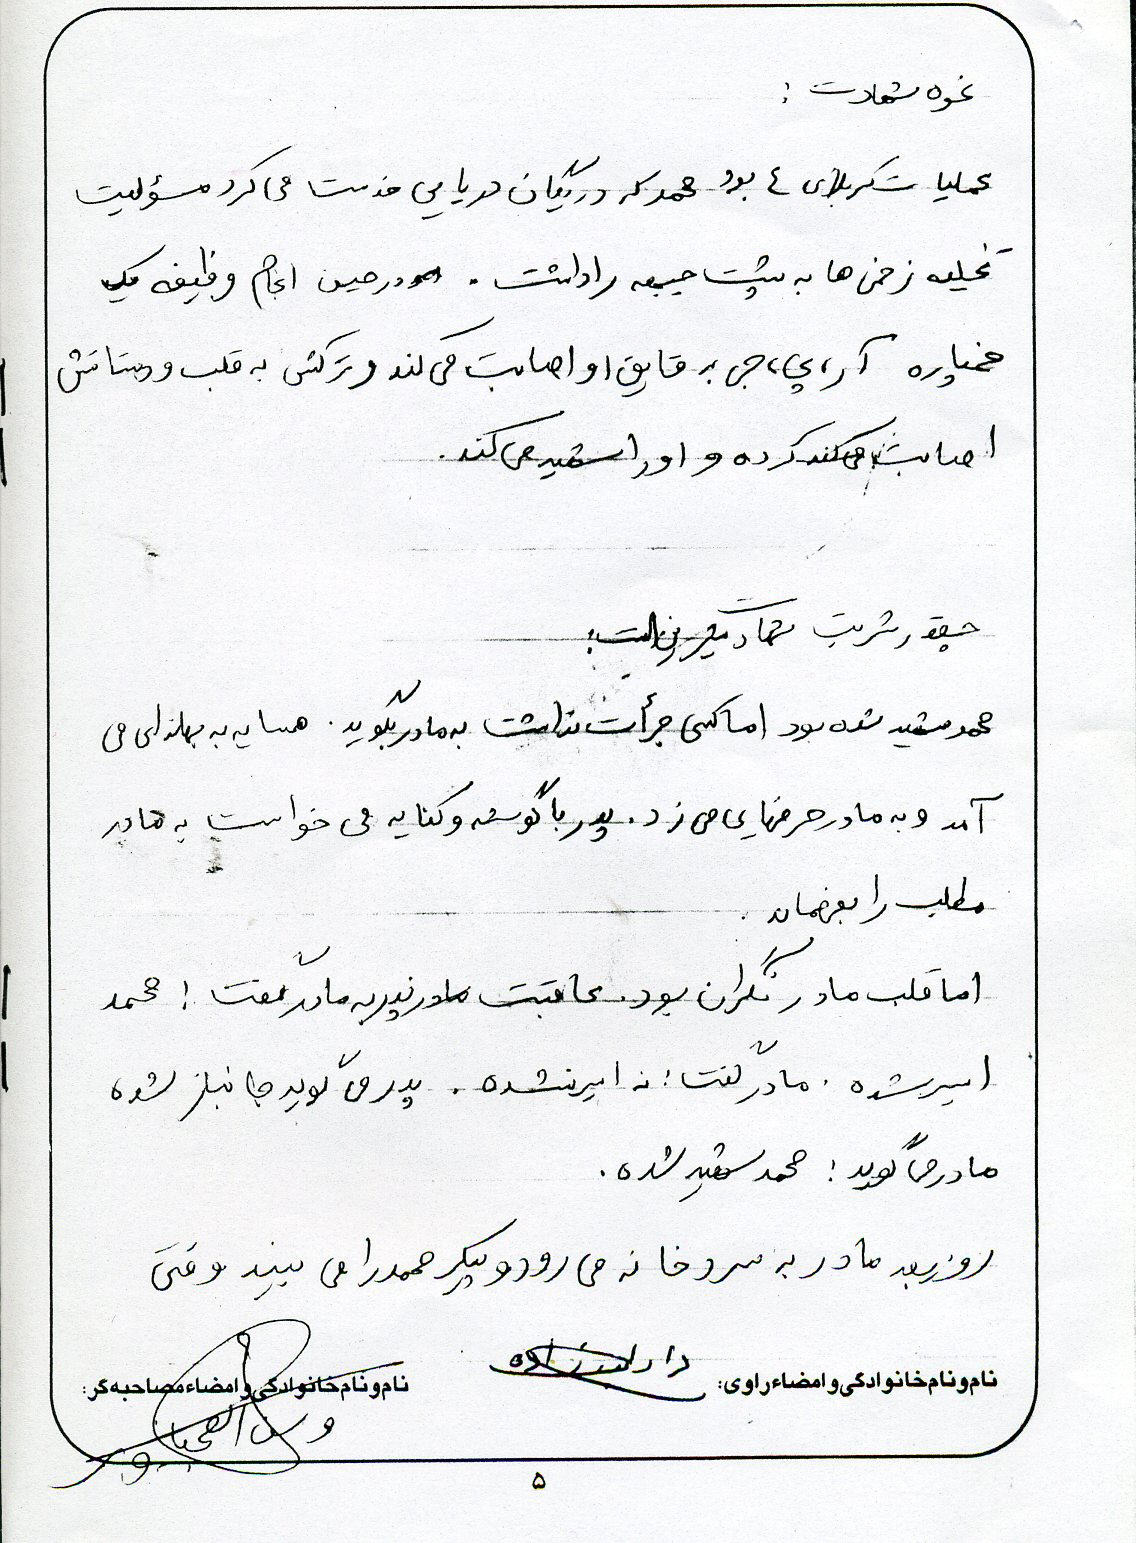 نحوه شهادت :
عملیات کربلای ٤ بود محمد که در یگان دریایی خدمت می کرد مسؤلیت
تخلیه زخمی ها به پشت جبهه را داشت . در حین انجام وظیفه یک
خمپاره آر، پی، جی بر قایق او اصابت می کند و ترکش به قلب و دستانش
اصابت کرده و او را شهید می کند .
چقدر شربت شهادت
محمد شهید شده بود اما کسی جرأت نداشت به مادر بگوید . همسایه به بهانه ای می
آمد و به مادر حرفهای می زد . پدر با گوشه و کنایه می خواست به مادر
مطلب را بفهماند .
اما قلب مادر نگران بود . عاقبت پدر به مادر گفت : محمد
اسیر شده . مادر گفت : نه اسیر نشده . پدر می گوید جانباز شده
مادر می گوید : محمد شهید شده .
روز بعد مادر به سردخانه می رود و پیکر محمد را می بیند وقتی
نام و نام خانوادگی و امضاء راوی:
نام و نام خانوادگی و امضاء مصاحبه گر:
۵